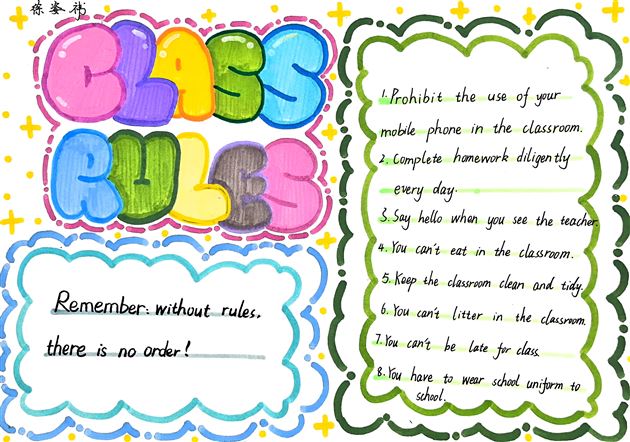 CLASS
RULES
Remember: without rules,
there is no order!
1. Prohibit the use of your
mobile phone in the classroom.
2. Complete homework diligently
every day.
3. Say hello when you see the teacher.
4. You can't eat in the classroom.
5. Keep the classroom clean and tidy.
6. You can't litter in the classroom.
7. You can't be late for class.
8. You have to wear school uniform to
school.